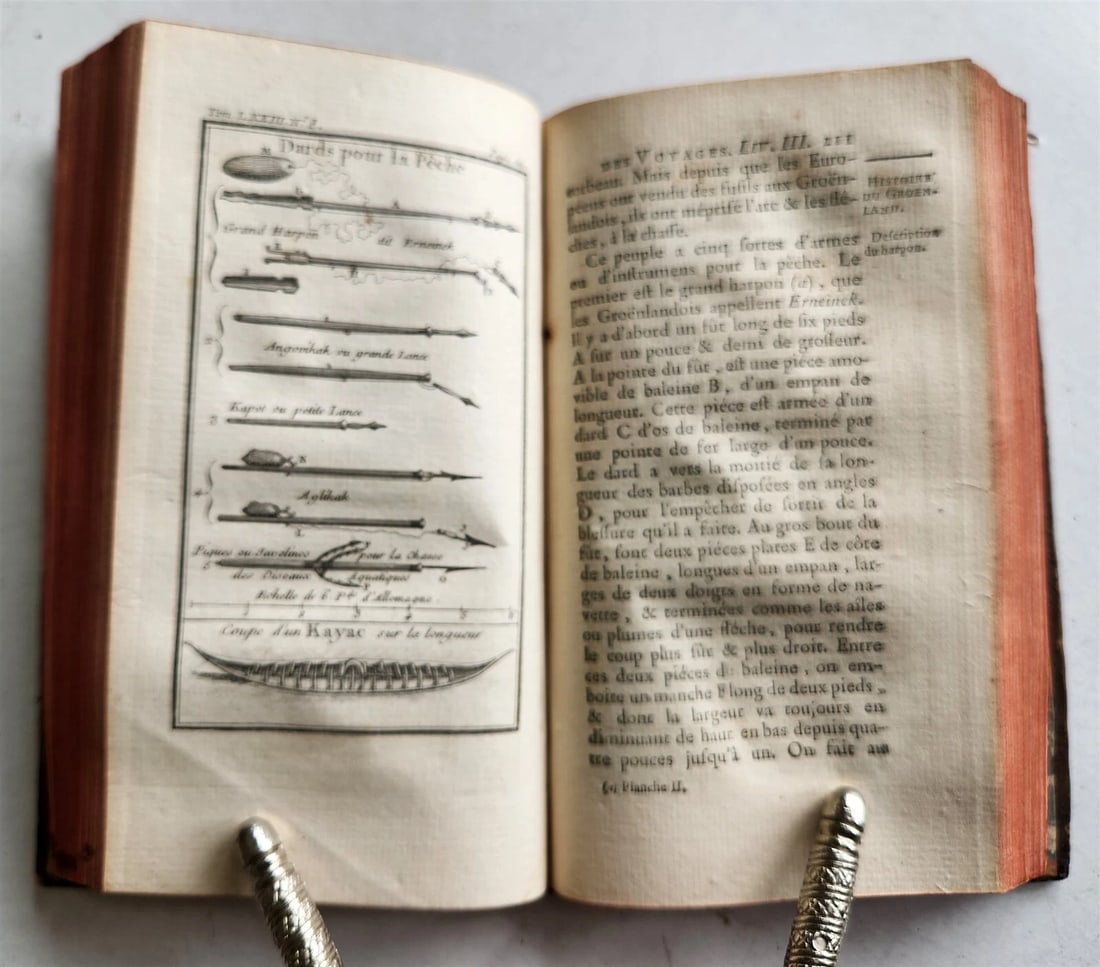 Tom. LXXIII. N.º 8.
Dards pour la Pêche
A
Grand Harpon dit Erneinck
B
Angovikak ou grande Lance
Kapot ou petite Lance
Aglikak
Piques ou Javelines pour la Chasse
des Oiseaux Aquatiques
Echelle de 6. P.ds d'Allemagne.
Coupe d'un Kayac sur la longueur
DES VOYAGES. LIV. III.
corbeau. Mais depuis que les Euro-
péens ont vendu des fusils aux Groën-
landois, ils ont méprisé l'arc & les flé-
ches, à la chasse.
Ce peuple a cinq sortes d'armes
ou d'instrumens pour la pêche. Le
premier est le grand harpon (a), que
les Groënlandois appellent Erneinck.
Il y a d'abord un fût long de six pieds
A sur un pouce & demi de grosseur.
A la pointe du fût, est une piéce amo-
vible de baleine B, d'un empan de
longueur. Cette piéce est armée d'un
dard C d'os de baleine, terminé par
une pointe de fer large d'un pouce.
Le dard a vers la moitié de sa lon-
gueur des barbes disposées en angles
D, pour l'empêcher de sortir de la
blessure qu'il a faite. Au gros bout du
fût, sont deux piéces plates E de côte
de baleine, longues d'un empan, lar-
ges de deux doigts en forme de na-
vette, & terminées comme les aîles
ou plumes d'une fléche, pour rendre
le coup plus sûr & plus droit. Entre
ces deux piéces de baleine, on em-
boite un manche F long de deux pieds,
& dont la largeur va toujours en
diminuant de haut en bas depuis qua-
tre pouces jusqu'à un. On fait au
(a) Planche II.
HISTOIRE
DU GROEN-
LAND.
Description
du harpon.